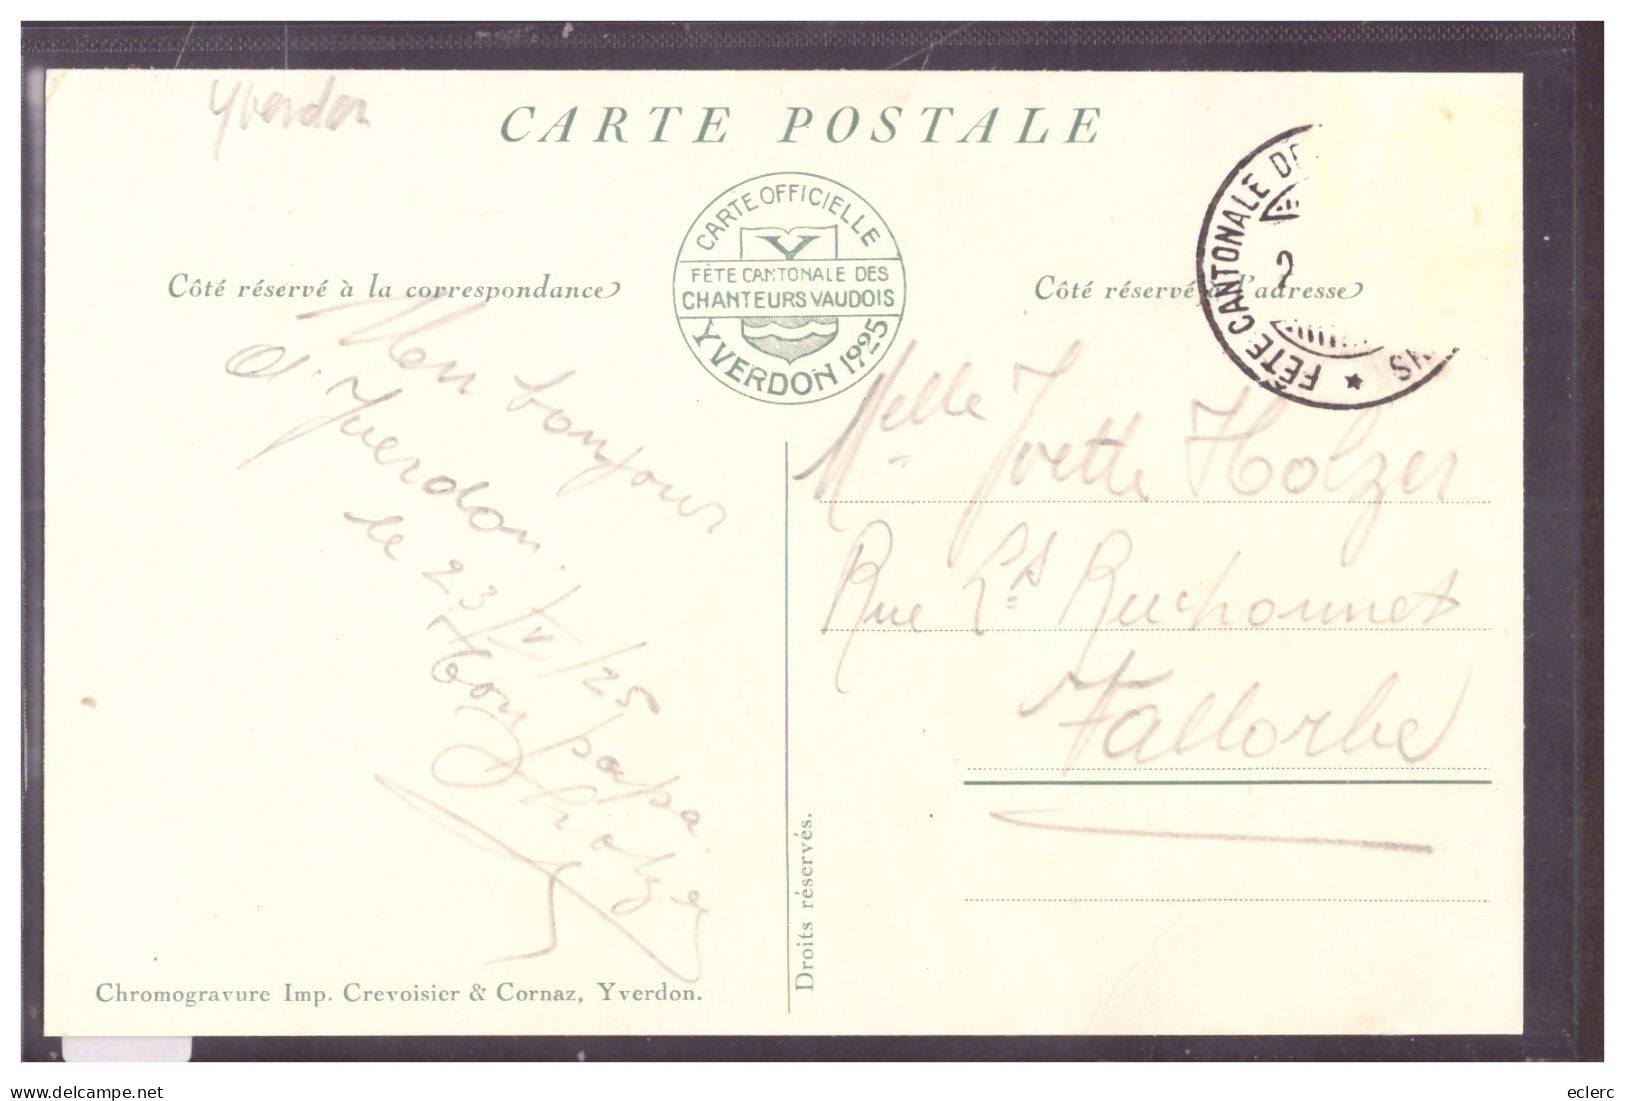 Yverdon
CARTE POSTALE
CARTE OFFICIELLE
Y
FÊTE CANTONALE DES
CHANTEURS VAUDOIS
YVERDON 1925
FÊTE CANTONALE DE
2
Côté réservé à la correspondance
Côté réservé à l'adresse
Mon bonjour
d'Yverdon
le 23/V/25
Ton papa
Holzer
Melle Yvette Holzer
Rue Ls Ruchonnet
Vallorbe
Droits réservés.
Chromogravure Imp. Crevoisier & Cornaz, Yverdon.
delcampe.net
eclerc